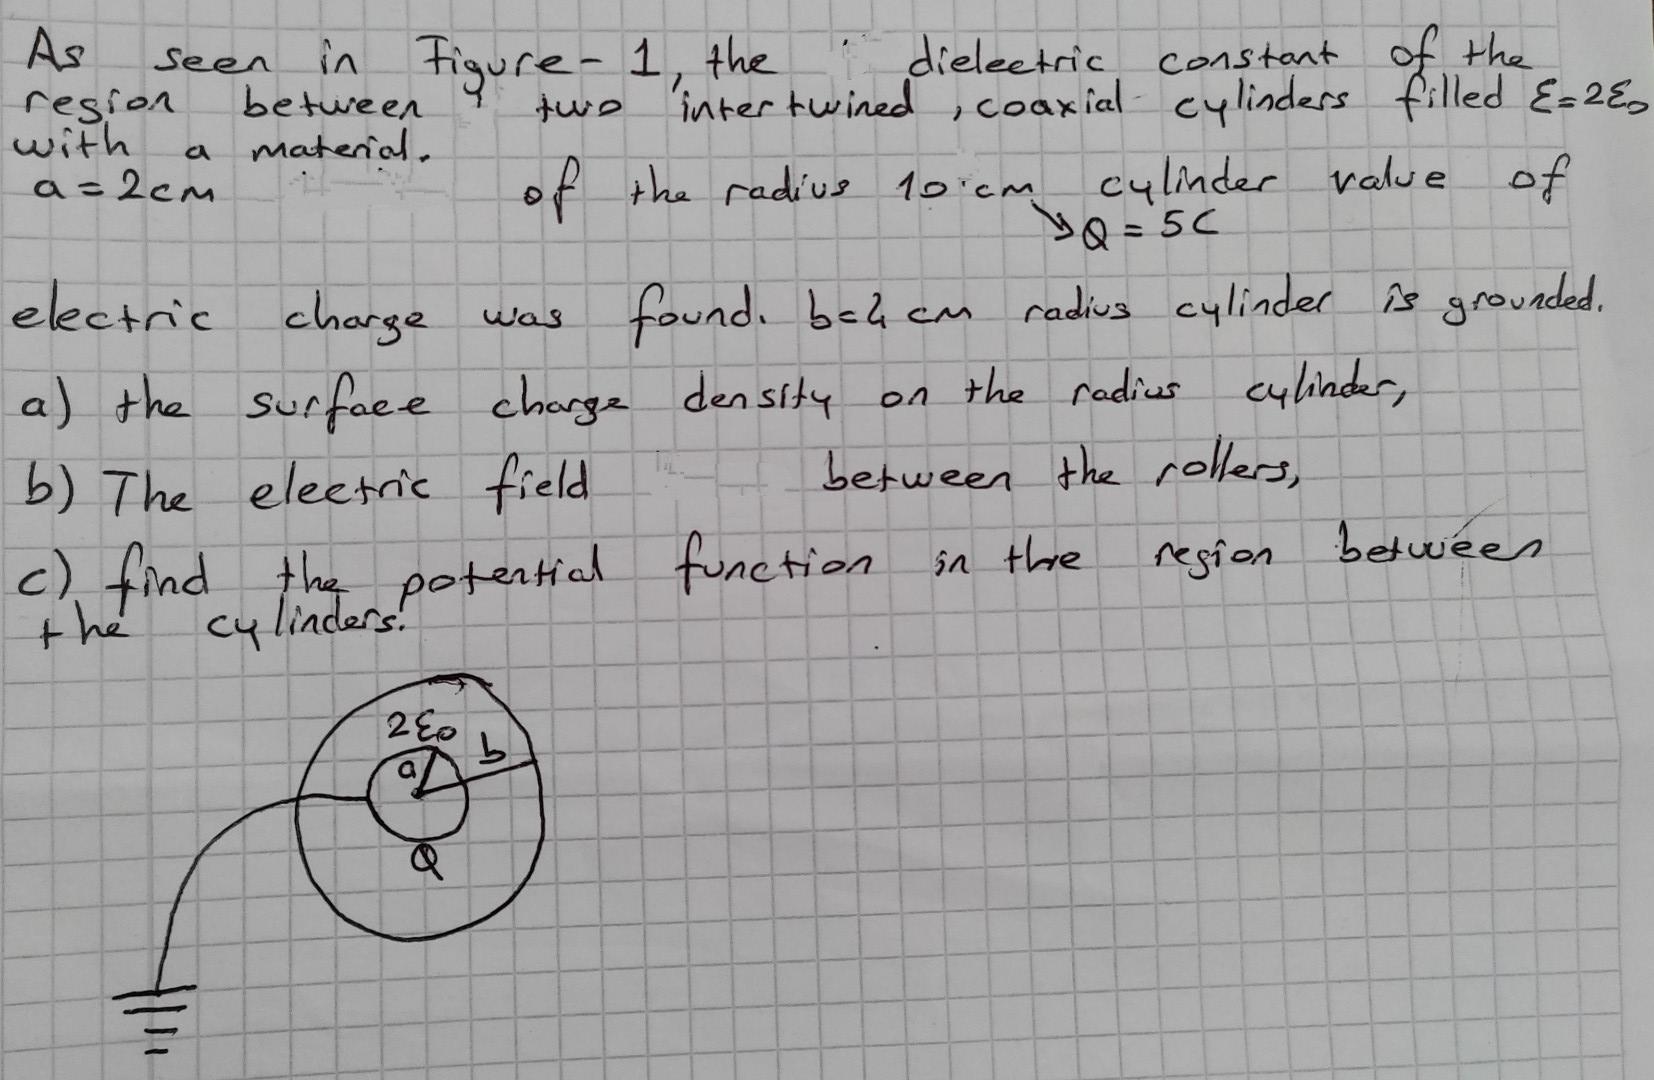 As seen in Figure-1, the dielectric constant of the
region between two intertwined, coaxial cylinders filled ε=2ε₀
with a material.
a=2cm of the radius 10 cm cylinder value of
↘Q = 5C
electric charge was found. b=4 cm radius cylinder is grounded.
a) the surface charge density on the radius cylinder,
b) The electric field between the rollers,
c) find the potential function in the region between
the cylinders.
2ε₀
a b
Q